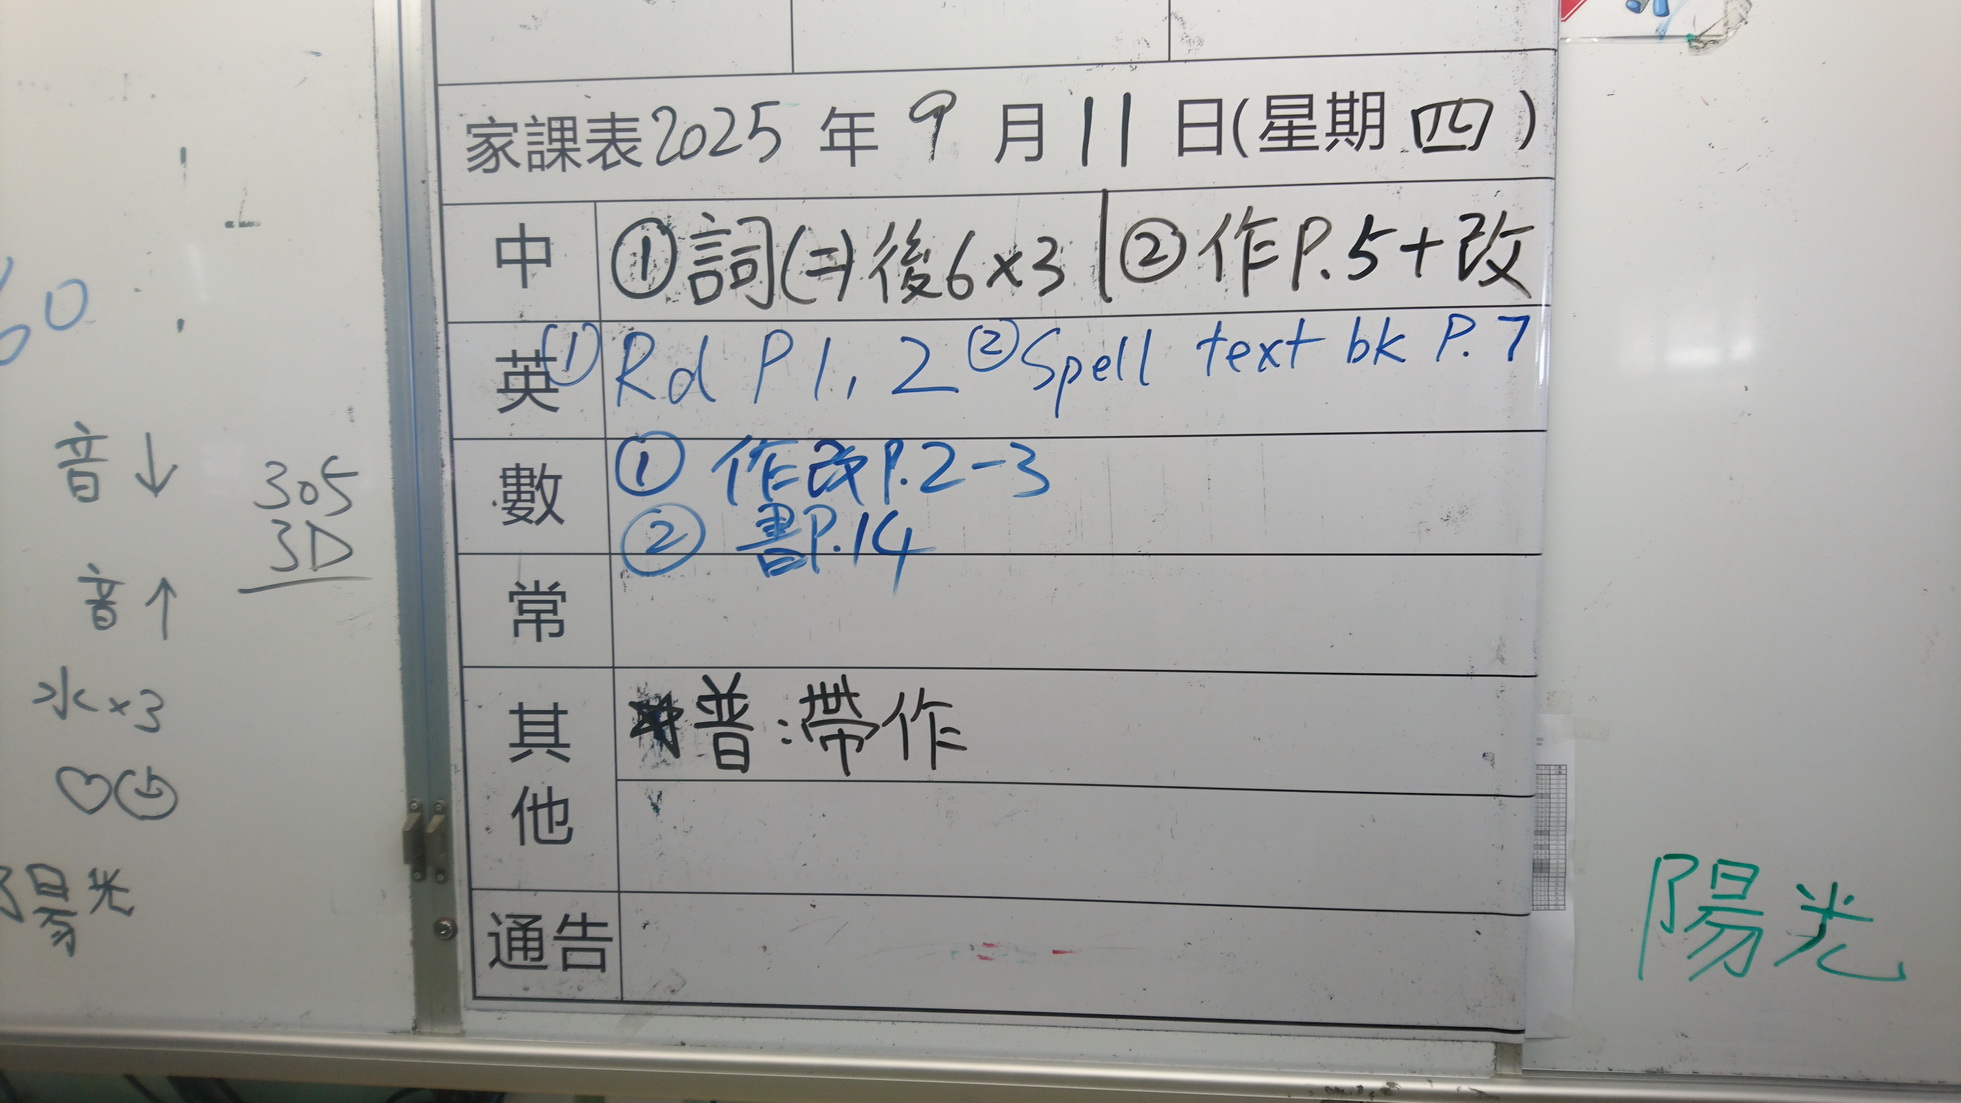 家課表2025年9月11日(星期四)
中 ①詞(二)後6×3 | ②作P.5+改
英 ①Rd P1, 2 ②Spell text bk P.7
數 ① 作改P.2-3
② 書P.14
常
其他 ★普:帶作
通告
60
音↓
305
3D
音↑
水×3
陽光
陽光